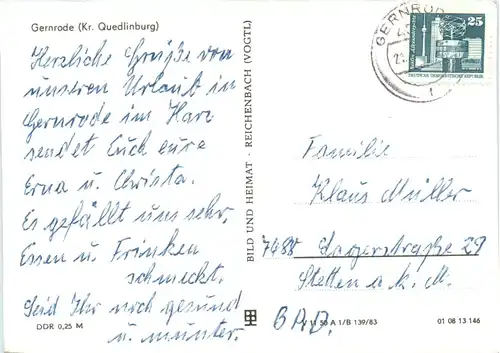 Gernrode (Kr. Quedlinburg)
Herzliche Grüße von
unseren Urlaub in
Gernrode im Harz
sendet Euch eure
Erna u. Christa.
Es gefällt uns sehr.
Essen u. Trinken
schmeckt.
Seid Ihr noch gesund
u. munter.
DDR 0,25 M
BILD UND HEIMAT · REICHENBACH (VOGTL)
GERNROD
25
DEUTSCHE DEMOKRATISCHE REPUBLIK
Familie
Klaus Müller
7488 Lagerstraße 29
Stetten a. k. M.
BRD.
V 11 50 A 1/B 139/83
01 08 13 146